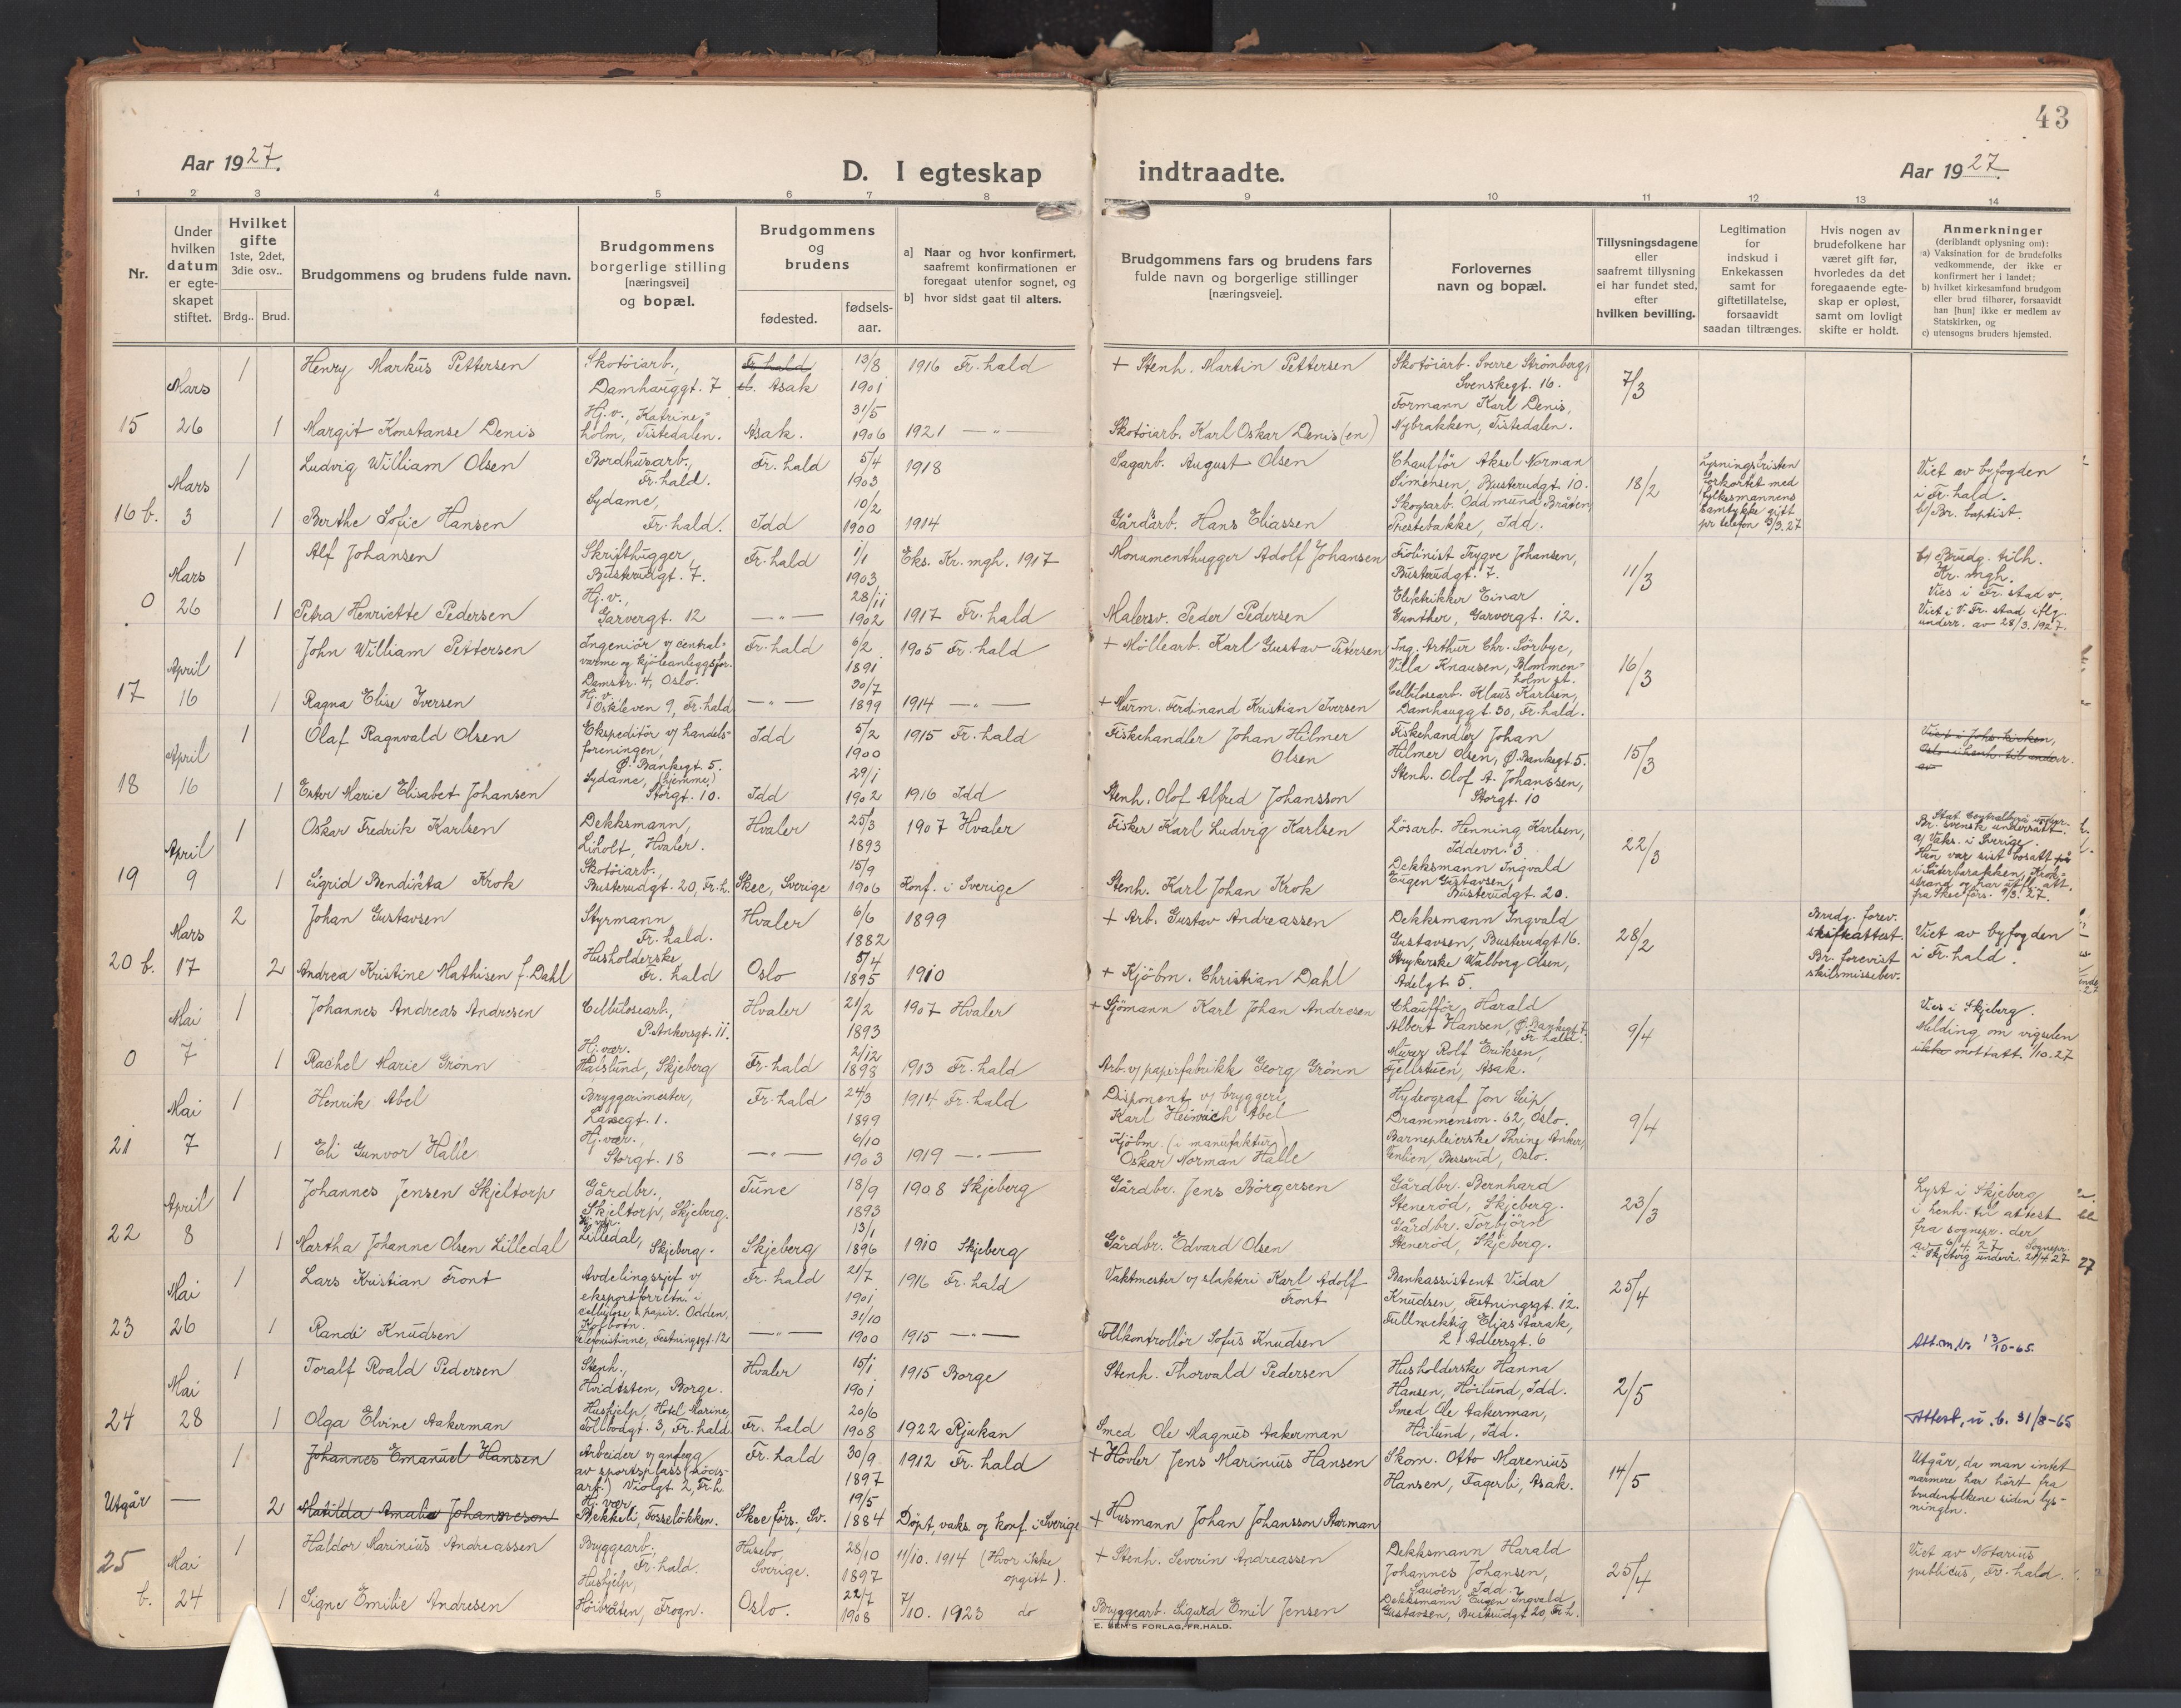 43
Aar 1927.
D. I egteskap indtraadte.
Aar 1927.
1 2 3 4 5 6 7 8 9 10 11 12 13 14
Nr.
Under hvilken datum er egteskapet stiftet.
Hvilket gifte 1ste, 2det, 3die osv..
Brdg.. Brud.
Brudgommens og brudens fulde navn.
Brudgommens borgerlige stilling [næringsvei] og bopæl.
Brudgommens og brudens
fødested.
fødsels-aar.
a) Naar og hvor konfirmert, saafremt konfirmationen er foregaat utenfor sognet, og
b) hvor sidst gaat til alters.
Brudgommens fars og brudens fars fulde navn og borgerlige stillinger [næringsveie].
Forlovernes navn og bopæl.
Tillysningsdagene eller saafremt tillysning ei har fundet sted, efter hvilken bevilling.
Legitimation for indskud i Enkekassen samt for giftetillatelse, forsaavidt saadan tiltrænges.
Hvis nogen av brudefolkene har været gift før, hvorledes da det foregaaende egteskap er opløst, samt om lovligt skifte er holdt.
Anmerkninger (deriblandt oplysning om):
a) Vaksination for de brudefolks vedkommende, der ikke er konfirmert her i landet;
b) hvilket kirkesamfund brudgom eller brud tilhører, forsaavidt han [hun] ikke er medlem av Statskirken, og
c) utensogns bruders hjemsted.
Mars 1 Henry Markus Pettersen Skotøiarb., Damhauggt. 7 Fr.hald Asak 13/8 1901 1916 Fr.hald + Stenh. Martin Pettersen Skotøiarb. Sverre Strømberg, Svenskegt. 16. 7/3
15 26 1 Margit Konstanse Denis Hj.v., Katrineholm, Tistedalen. Asak. 31/5 1906 1921 —"— Skotøiarb. Karl Oskar Denis(en) Formann Karl Denis, Nybrakken, Tistedalen.
Mars 1 Ludvig William Olsen Bordhusarb., Fr.hald. Fr.hald 5/4 1903 1918 Sagarb. August Olsen Chaufför Aksel Norman Simensen, Busterudgt. 10. 18/2 Lysningsfristen forkortet med fylkesmannens samtykke gitt pr telefon 3/3.27 Viet av byfogden i Fr.hald.
16 b. 3 1 Berthe Sofie Hansen Sydame, Fr.hald. Idd 10/2 1900 1914 Gårdarb. Hans Eliassen Skogsarb. Oddmund Bråten, Prestebakke, Idd. b/ Br. baptist.
Mars 1 Alf Johansen Skrifthugger, Busterudgt. 7. Fr.hald 1/1 1903 Eks. Kr. mgh. 1917 Monumenthugger Adolf Johansen Fiolinist Trygve Johansen, Busterudgt. 7. 11/3 b/ Brudg. tilh. Kr. mgh.
0 26 1 Petra Henriette Pedersen Hj.v., Garvergt. 12 —"— 28/11 1902 1917 Fr.hald Malersv. Peder Pedersen Elektrikker Einar Gunther, Garvergt. 12. Vies i Fr.stad v. Viet i V. Fr.stad iflg. underr. av 28/3.1927.
April 1 John William Pettersen Ingeniör v/ centralvarme og kjöleanleggsfor. Damstr. 4, Oslo. Fr.hald 6/2 1891 1905 Fr.hald + Møllearb. Karl Gustav Petersen Ing. Arthur Chr. Sörbye, Villa Knausen, Blommenholm st. 16/3
17 16 1 Ragna Elise Iversen Hj.v. Oskleven 9, Fr.hald —"— 30/7 1899 1914 —"— + Murm. Ferdinand Kristian Iversen Cellulosearb. Klaus Karlsen, Damhauggt. 30, Fr.hald.
April 1 Olaf Ragnvald Olsen Ekspeditör v/ handelsforeningen, Ø. Bankegt. 5. Idd 5/2 1900 1915 Fr.hald Fiskehandler Johan Hilmer Olsen Fiskehandler Johan Hilmer Olsen, Ø. Bankegt 5. 15/3 Viet i Johs. kirken, Oslo
18 16 1 Ester Marie Elisabet Johansen Sydame, (hjemme) Storgt. 10. Idd 29/1 1902 1916 Idd Stenh. Olof Alfred Johansson Stenh. Olof A. Johanssen, Storgt. 10
April 1 Oskar Fredrik Karlsen Dekksmann, Liholt, Hvaler. Hvaler 25/3 1893 1907 Hvaler Fisker Karl Ludvig Karlsen Lösarb. Henning Karlsen, Iddevn. 3 22/3 Br. svensk undersått. a/ Vaks. i Sverige.
19 9 1 Sigrid Bendikta Krok Skotøiarb., Busterudgt. 20, Fr.h. Skee, Sverige 15/9 1906 Konf. i Sverige Stenh. Karl Johan Krok Dekksmann Ingvald Eugen Gustavsen, Busterudgt. 20. Hun var sist bosatt i Säterbarakken, Krokstrand og har utfl. att. fra Skee förs. 9/3. 27.
Mars 2 Johan Gustavsen Styrmann, Fr.hald. Hvaler 6/6 1882 1899 + Arb. Gustav Andreassen Dekksmann Ingvald Gustavsen, Busterudgt 16. 28/2 Brudg. forev. skifteattest. Viet av byfogden i Fr.hald.
20 b. 17 2 Andrea Kristine Mathisen f. Dahl Husholderske Fr. hald Oslo 5/4 1895 1910 + Kjöbm. Christian Dahl Strykerske Walborg Olsen, Adelgt 5. Br. forevist skilsmissebev.
Mai 1 Johannes Andreas Andresen Cellulosearb., P. Ankersgt. 11. Hvaler 21/2 1893 1907 Hvaler + Sjömann Karl Johan Andresen Chauffør Harald Albert Hansen, Ø. Bankegt 7, Fr.hald. 9/4 Vies i Skjeberg.
0 7 1 Rachel Marie Grönn Hj.vær. Hafslund, Skjeberg Fr.hald 2/12 1898 1913 Fr.hald Arb. v/ paperfabrikk Georg Grönn Murer Rolf Eriksen, Fjellstuen, Asak. Melding om vigselen ikke mottatt 1/10.27
Mai 1 Henrik Abel Bryggerimester, Låsegt. 1. Fr.hald 24/3 1899 1914 Fr.hald Disponent v/ bryggeri, Karl Heinrich Abel Hydrograf Jon Seip, Drammensvn. 62, Oslo. 9/4
21 7 1 Eli Gunvor Halle Hj.vær., Storgt. 18 —"— 6/10 1903 1919 —"— Kjöbm. (i manufaktur) Oskar Norman Halle Barnepleierske Thrine Anker, Venlien, Besserud, Oslo.
April 1 Johannes Jensen Skjeltorp Gårdbr., Skjeltorp, Skjeberg. Tune 18/9 1893 1908 Skjeberg Gårdbr. Jens Börgersen Gårdbr. Bernhard Steneröd, Skjeberg. 23/3 Lyst i Skjeberg i henh. til attest fra sognepr. der
22 8 1 Martha Johanne Olsen Lilledal Hj.vær. Lilledal, Skjeberg. Skjeberg 13/1 1896 1910 Skjeberg Gårdbr. Edvard Olsen Gårdbr. Torbjörn Steneröd, Skjeberg. av 6/4. 27. Sognepr. i Skjeberg underr. 21/4 27
Mai 1 Lars Kristian Front Avdelingssjef v/ eksportforretn. i cellulose & papir. Odden, Kolbotn. Fr.hald 21/7 1901 1916 Fr.hald Vaktmester v/ slakteri Karl Adolf Front Bankassistent Vidar Knudsen, Festningsgt. 12. 25/4
23 26 1 Randi Knudsen Telefonistinne, Festningsgt. 12 —"— 31/10 1900 1915 —"— Tollkontrollör Sofus Knudsen Fullmektig Elias Aarak, L. Adlersgt. 6 Att. m. b. 13/10-65.
Mai 1 Toralf Roald Pedersen Stenh., Hvidsten, Borge. Hvaler 15/1 1901 1915 Borge Stenh. Thorvald Pedersen Husholderske Hanna Hansen, Höilund, Idd. 2/5
24 28 1 Olga Elvine Aakerman Hushjelp, Hotel Marine, Tollbodgt. 3, Fr.hald. Fr. hald 20/6 1908 1922 Rjukan Smed Ole Magnus Aakerman Smed Ole Aakerman, Höilund, Idd. Attest, u. b. 31/8-65
1 Johannes Emanuel Hansen Arbeider v/ anlegg av sportsplass (nödsarb.) Violgt 2, Fr.h. Fr.hald 30/9 1897 1912 Fr.hald + Hövler Jens Marinius Hansen Skom. Otto Marenius Hansen, Fagerli, Asak. 14/5 Utgår, da man intet nærmere har hört fra brudefolkene siden lysningen.
Utgår — 2 Matilda Amalia Johannesson Hj.vær, Bekkeli, Fosselökken. Skee förs., Sv. 19/5 1884 Döpt, vaks. og konf. i Sverige + Husmann Johan Johansson Starman
25 Mai 1 Haldor Marinius Andreassen Bryggearb., Fr.hald. Husebo, Sverige. 28/10 1897 11/10. 1914 (Hvor ikke opgitt). + Stenh. Severin Andreassen Dekksmann Harald Johannes Johansen, Sauöen, Idd. 25/4 Viet av Notarius publicus, Fr.hald.
b. 24 1 Signe Emilie Andresen Hushjelp, Höibråten, Frogn. Oslo. 22/7 1908 7/10. 1923 do Bryggearb. Sigurd Emil Jensen Dekksmann Eugen Ingvald Gustavsen, Busterudgt 20, Fr.h.
E. SEM'S FORLAG, FR.HALD.